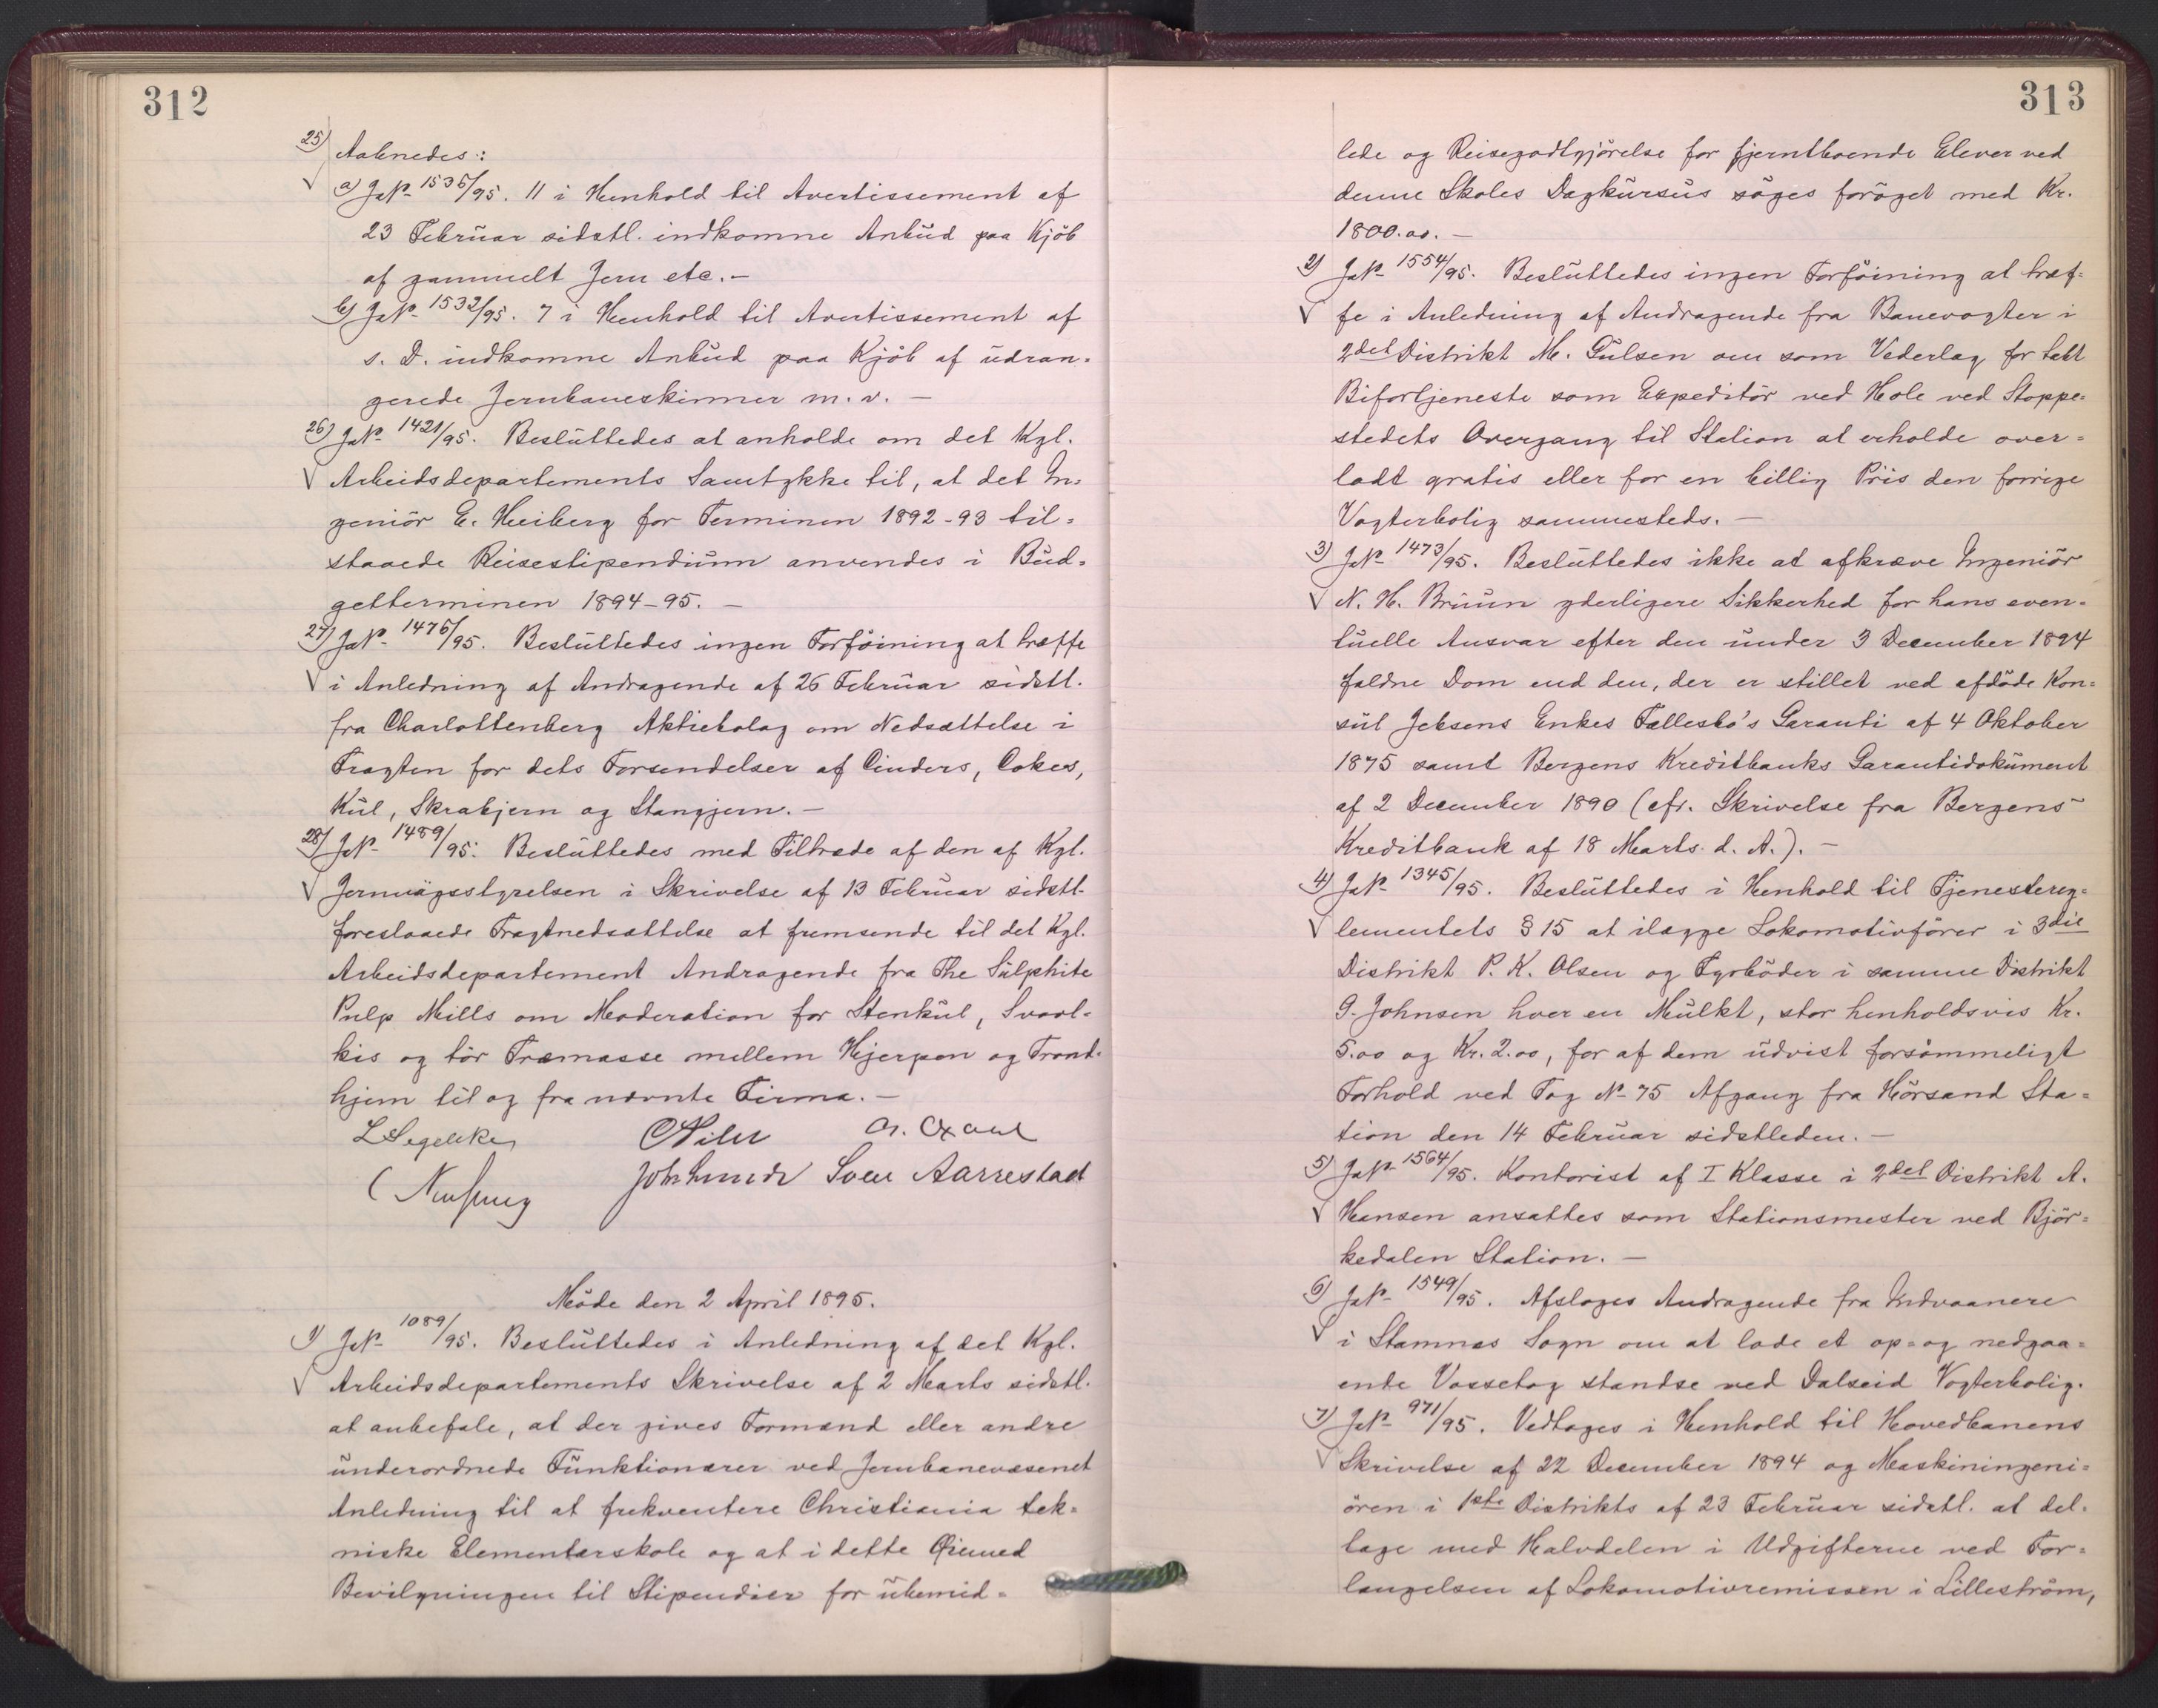 312
25) Aabnedes:
a) JNo 1535/95. 11 i Henhold til Avertissement af
23 Februar sidstl. indkomne Anbud paa Kjöb
af gammelt Jern etc. —
b) JNo 1532/95. 7 i Henhold til Avertissement af
s. D. indkomne Anbud paa Kjöb af udran-
gerede Jernbaneskinner m. v. —
26) JNo 1421/95. Besluttedes at anholde om det Kgl.
Arbeidsdepartements Samtykke til, at det In-
geniör E. Heiberg for Terminen 1892-93 til-
staaede Reisestipendium anvendes i Bud-
getterminen 1894-95. —
27) JNo 1476/95. Besluttedes ingen Forföining at træffe
i Anledning af Andragende af 26 Februar sidstl.
fra Charlottenberg Aktiebolag om Nedsættelse i
Fragten for dets Forsendelser af Cinders, Cokes,
Kul, Skrabjern og Stangjern. —
28) JNo 1489/95. Besluttedes med Tiltræde af den af Kgl.
Jernvägsstyrelsen i Skrivelse af 13 Februar sidstl.
foreslaaede Fragtnedsættelse at fremsende til det Kgl.
Arbeidsdepartement Andragende fra The Sulphite
Pulp Mills om Moderation for Stenkul, Svovl-
kis og tör Træmasse mellem Hjerpen og Trond-
hjem til og fra nævnte Firma. —
LSegelcke
Sven Aarrestad
Möde den 2 April 1895.
1) JNo 1089/95. Besluttedes i Anledning af det Kgl.
Arbeidsdepartements Skrivelse af 2 Marts sidstl.
at anbefale, at der gives Formænd eller andre
underordnede Funktionærer ved Jernbanevæsenet
Anledning til at frekventere Christiania tek-
niske Elementærskole og at i dette Øiemed
Bevilgningen til Stipendier for ubemid-
313
lede og Reisegodtgjörelse for fjerntboende Elever ved
denne Skoles Dagkursus söges foröget med Kr.
1800.00. —
2) JNo 1554/95. Besluttedes ingen Forföining at træf-
fe i Anledning af Andragende fra Banevogter i
2det Distrikt M. Gulsen om som Vederlag for tabt
Bifortjeneste som Expeditör ved Hole ved Stoppe-
stedets Overgang til Station at erholde over-
ladt gratis eller for en billig Pris den forrige
Vogterbolig sammesteds. —
3) JNo 1473/95. Besluttedes ikke at afkræve Ingeniör
N. H. Bruun yderligere Sikkerhed for hans even-
tuelle Ansvar efter den under 3 December 1894
faldne Dom end den, der er stillet ved afdöde Kon-
sul Jebsens Enkes Fællesbo's Garanti af 4 Oktober
1875 samt Bergens Kreditbanks Garantidokument
af 2 December 1890 (cfr. Skrivelse fra Bergens
Kreditbank af 18 Marts d. A.). —
4) JNo 1345/95. Besluttedes i Henhold til Tjenestereg-
lementets § 15 at ilægge Lokomotivförer i 3die
Distrikt P. K. Olsen og Fyrböder i samme Distrikt
G. Johnsen hver en Mulkt, stor henholdsvis Kr.
5.00 og Kr. 2.00, for af dem udvist forsömmeligt
Forhold ved Tog No 75 Afgang fra Hörsand Sta-
tion den 14 Februar sidstleden. —
5) JNo 1564/95. Kontorist af I Klasse i 2det Distrikt A.
Hansen ansattes som Stationsmester ved Björ-
kedalen Station. —
6) JNo 1549/95. Afsloges Andragende fra Indvaanere
i Stamnes Sogn om at lade et op- og nedgaa-
ende Vossetog standse ved Dalseid Vogterbolig.
7) JNo 971/95. Vedtoges i Henhold til Hovedbanens
Skrivelse af 22 December 1894 og Maskiningeni-
ören i 1ste Distrikts af 23 Februar sidstl. at del-
tage med Halvdelen i Udgifterne ved For-
længelsen af Lokomotivremissen i Lilleström,